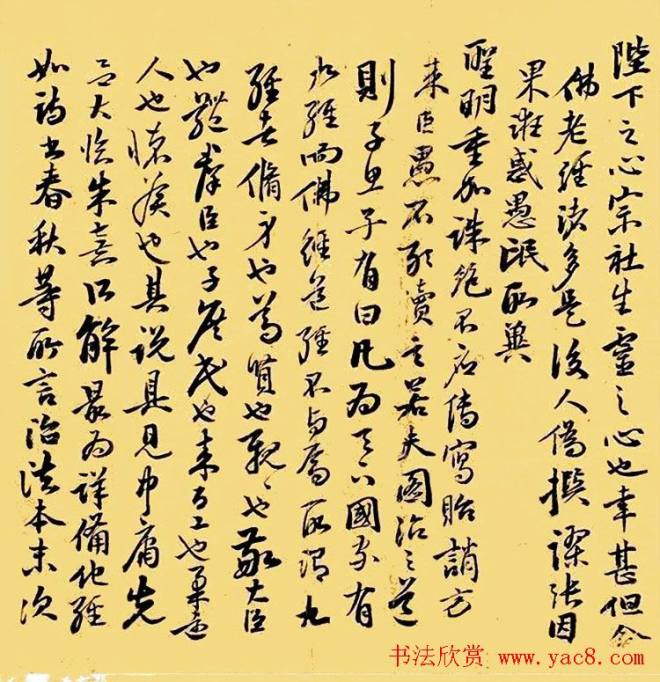 陛下之心宗社生靈之心也幸甚但念
佛老經法多是後人偽撰謬張因
果誑惑愚氓取與
聖明重加誅絕不應傳寫貽誚方
来臣愚不敢賣之若夫圖治之道
則子思子有曰凡為天下國家有
九經而佛經道經不与焉所謂九
經者脩身也尊賢也親〻也敬大臣
也體羣臣也子庶民也来百工也柔遠
人也懷侯也其說具見中庸先
呂大臨朱熹所解最為詳備他經
如詩书春秋等所言治法本末次
书法欣赏 www.yac8.com